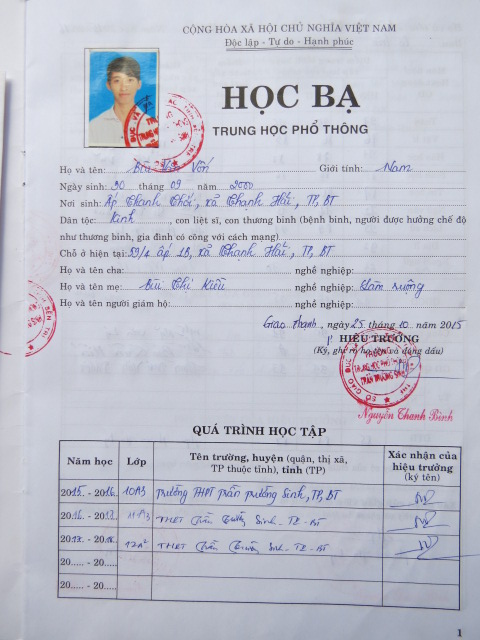 CỘNG HÒA XÃ HỘI CHỦ NGHĨA VIỆT NAM
Độc lập - Tự do - Hạnh phúc
HỌC BẠ
TRUNG HỌC PHỔ THÔNG
Họ và tên: Bùi Văn Vốn Giới tính: Nam
Ngày sinh: 30 tháng 09 năm 2000
Nơi sinh: Ấp Thạnh Thới, xã Thạnh Hải, TP, BT
Dân tộc: Kinh, con liệt sĩ, con thương binh (bệnh binh, người được hưởng chế độ
như thương binh, gia đình có công với cách mạng)
Chỗ ở hiện tại: 59/4 ấp 1B, xã Thạnh Hải, TP, BT
Họ và tên cha: nghề nghiệp:
Họ và tên mẹ: Bùi Thị Kiều nghề nghiệp: Làm ruộng
Họ và tên người giám hộ: nghề nghiệp:
Giao Thạnh, ngày 25 tháng 10 năm 2015
HIỆU TRƯỞNG
(Ký, ghi rõ họ tên và đóng dấu)
Nguyễn Thanh Bình
QUÁ TRÌNH HỌC TẬP
Năm học Lớp Tên trường, huyện (quận, thị xã, TP thuộc tỉnh), tỉnh (TP) Xác nhận của hiệu trưởng (ký tên)
2015 - 2016 10A3 Trường THPT Trần Trường Sinh, TP, BT
2016 - 2017 11A3 THPT Trần Trường Sinh - TP - BT
2017 - 2018 12A2 THPT Trần Trường Sinh - TP - BT
20..... - 20.....
20..... - 20.....
1